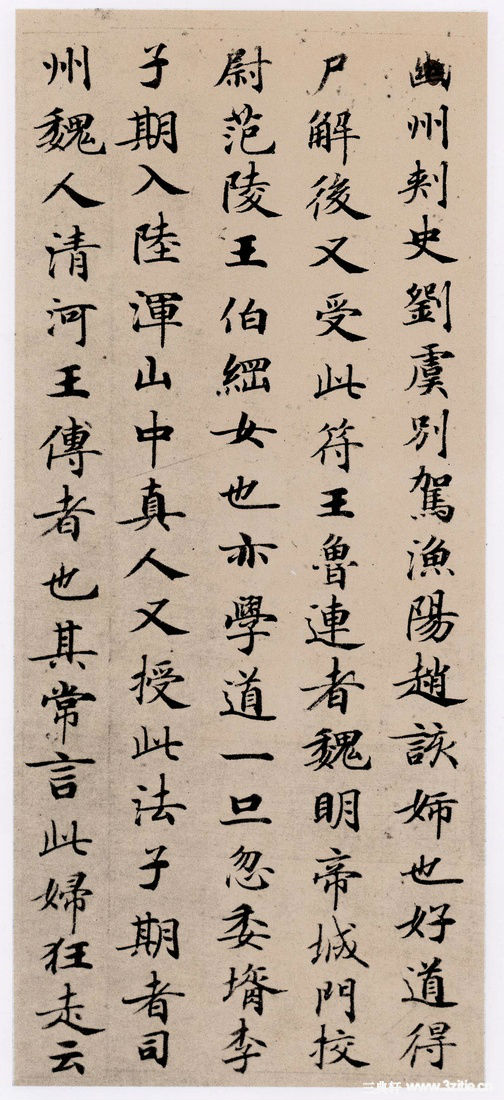 幽州刾史劉虞別駕漁陽趙該姉也好道得
尸解後又受此符王魯連者魏明帝城門挍
尉范陵王伯綱女也亦學道一旦忽委壻李
子期入陸渾山中真人又授此法子期者司
州魏人清河王傅者也其常言此婦狂走云
三典轩 www.3zitie.cn